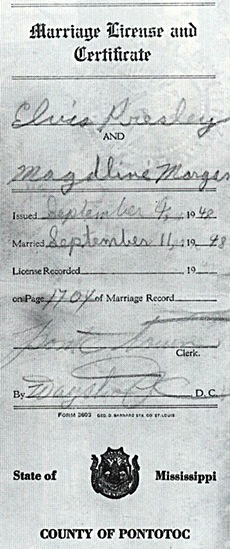 Marriage License and
Certificate
Elvis Presley
AND
Magdline Morgan
Issued September 4, 1948
Married September 11, 1948
License Recorded 19
on Page 1704 of Marriage Record
Clerk.
By D. C.
FORM 2603 GEO. D. BARNARD STA. CO. ST. LOUIS
State of Mississippi
COUNTY OF PONTOTOC